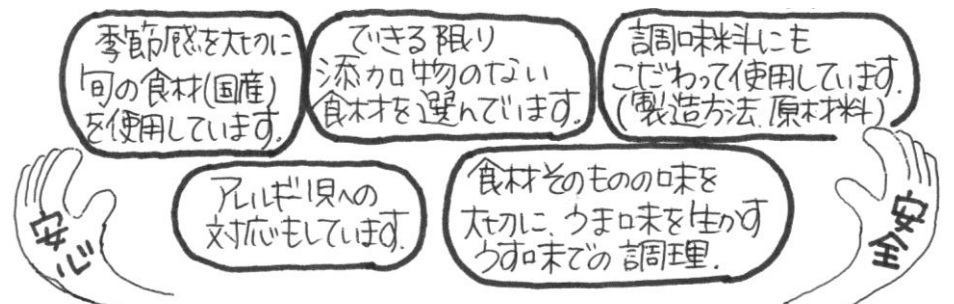 季節感を大切に
旬の食材(国産)
を使用しています.
できる限り
添加物のない
食材を選んでいます.
調味料にも
こだわって使用しています.
(製造方法、原材料)
アレルギー児への
対応もしています.
食材そのものの味を
大切に、うま味を生かす
うす味での調理.
安心
安全